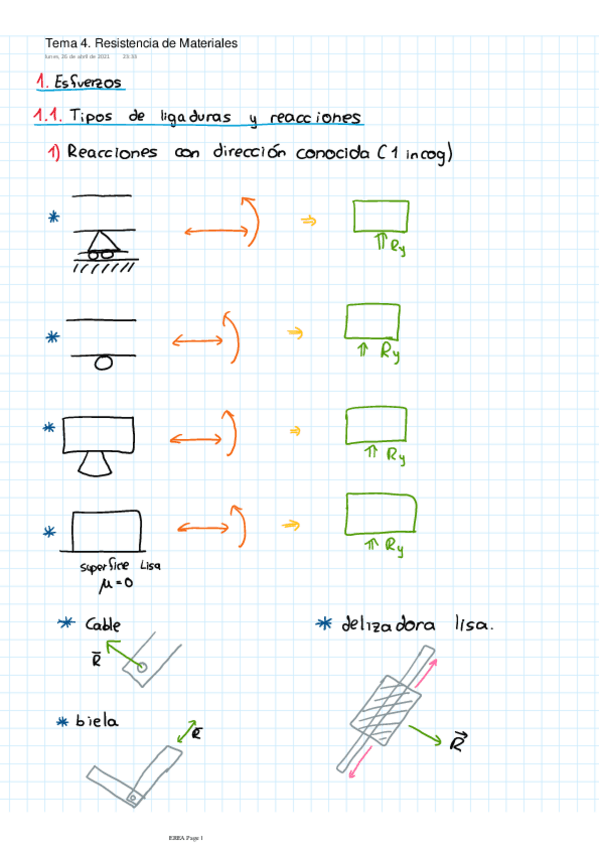 Tema 4. Resistencia de Materiales
lunes, 26 de abril de 2021 23:33
1. Esfuerzos
1.1. Tipos de ligaduras y reacciones
1) Reacciones con dirección conocida (1 incog)
* ⇒ ⇑ Ry
* ⇒ ⇑ Ry
* ⇒ ⇑ Ry
* ⇒ ⇑ Ry
superficie Lisa
μ=0
* Cable
R
* delizadora lisa.
R
* biela
R
EREA Page 1